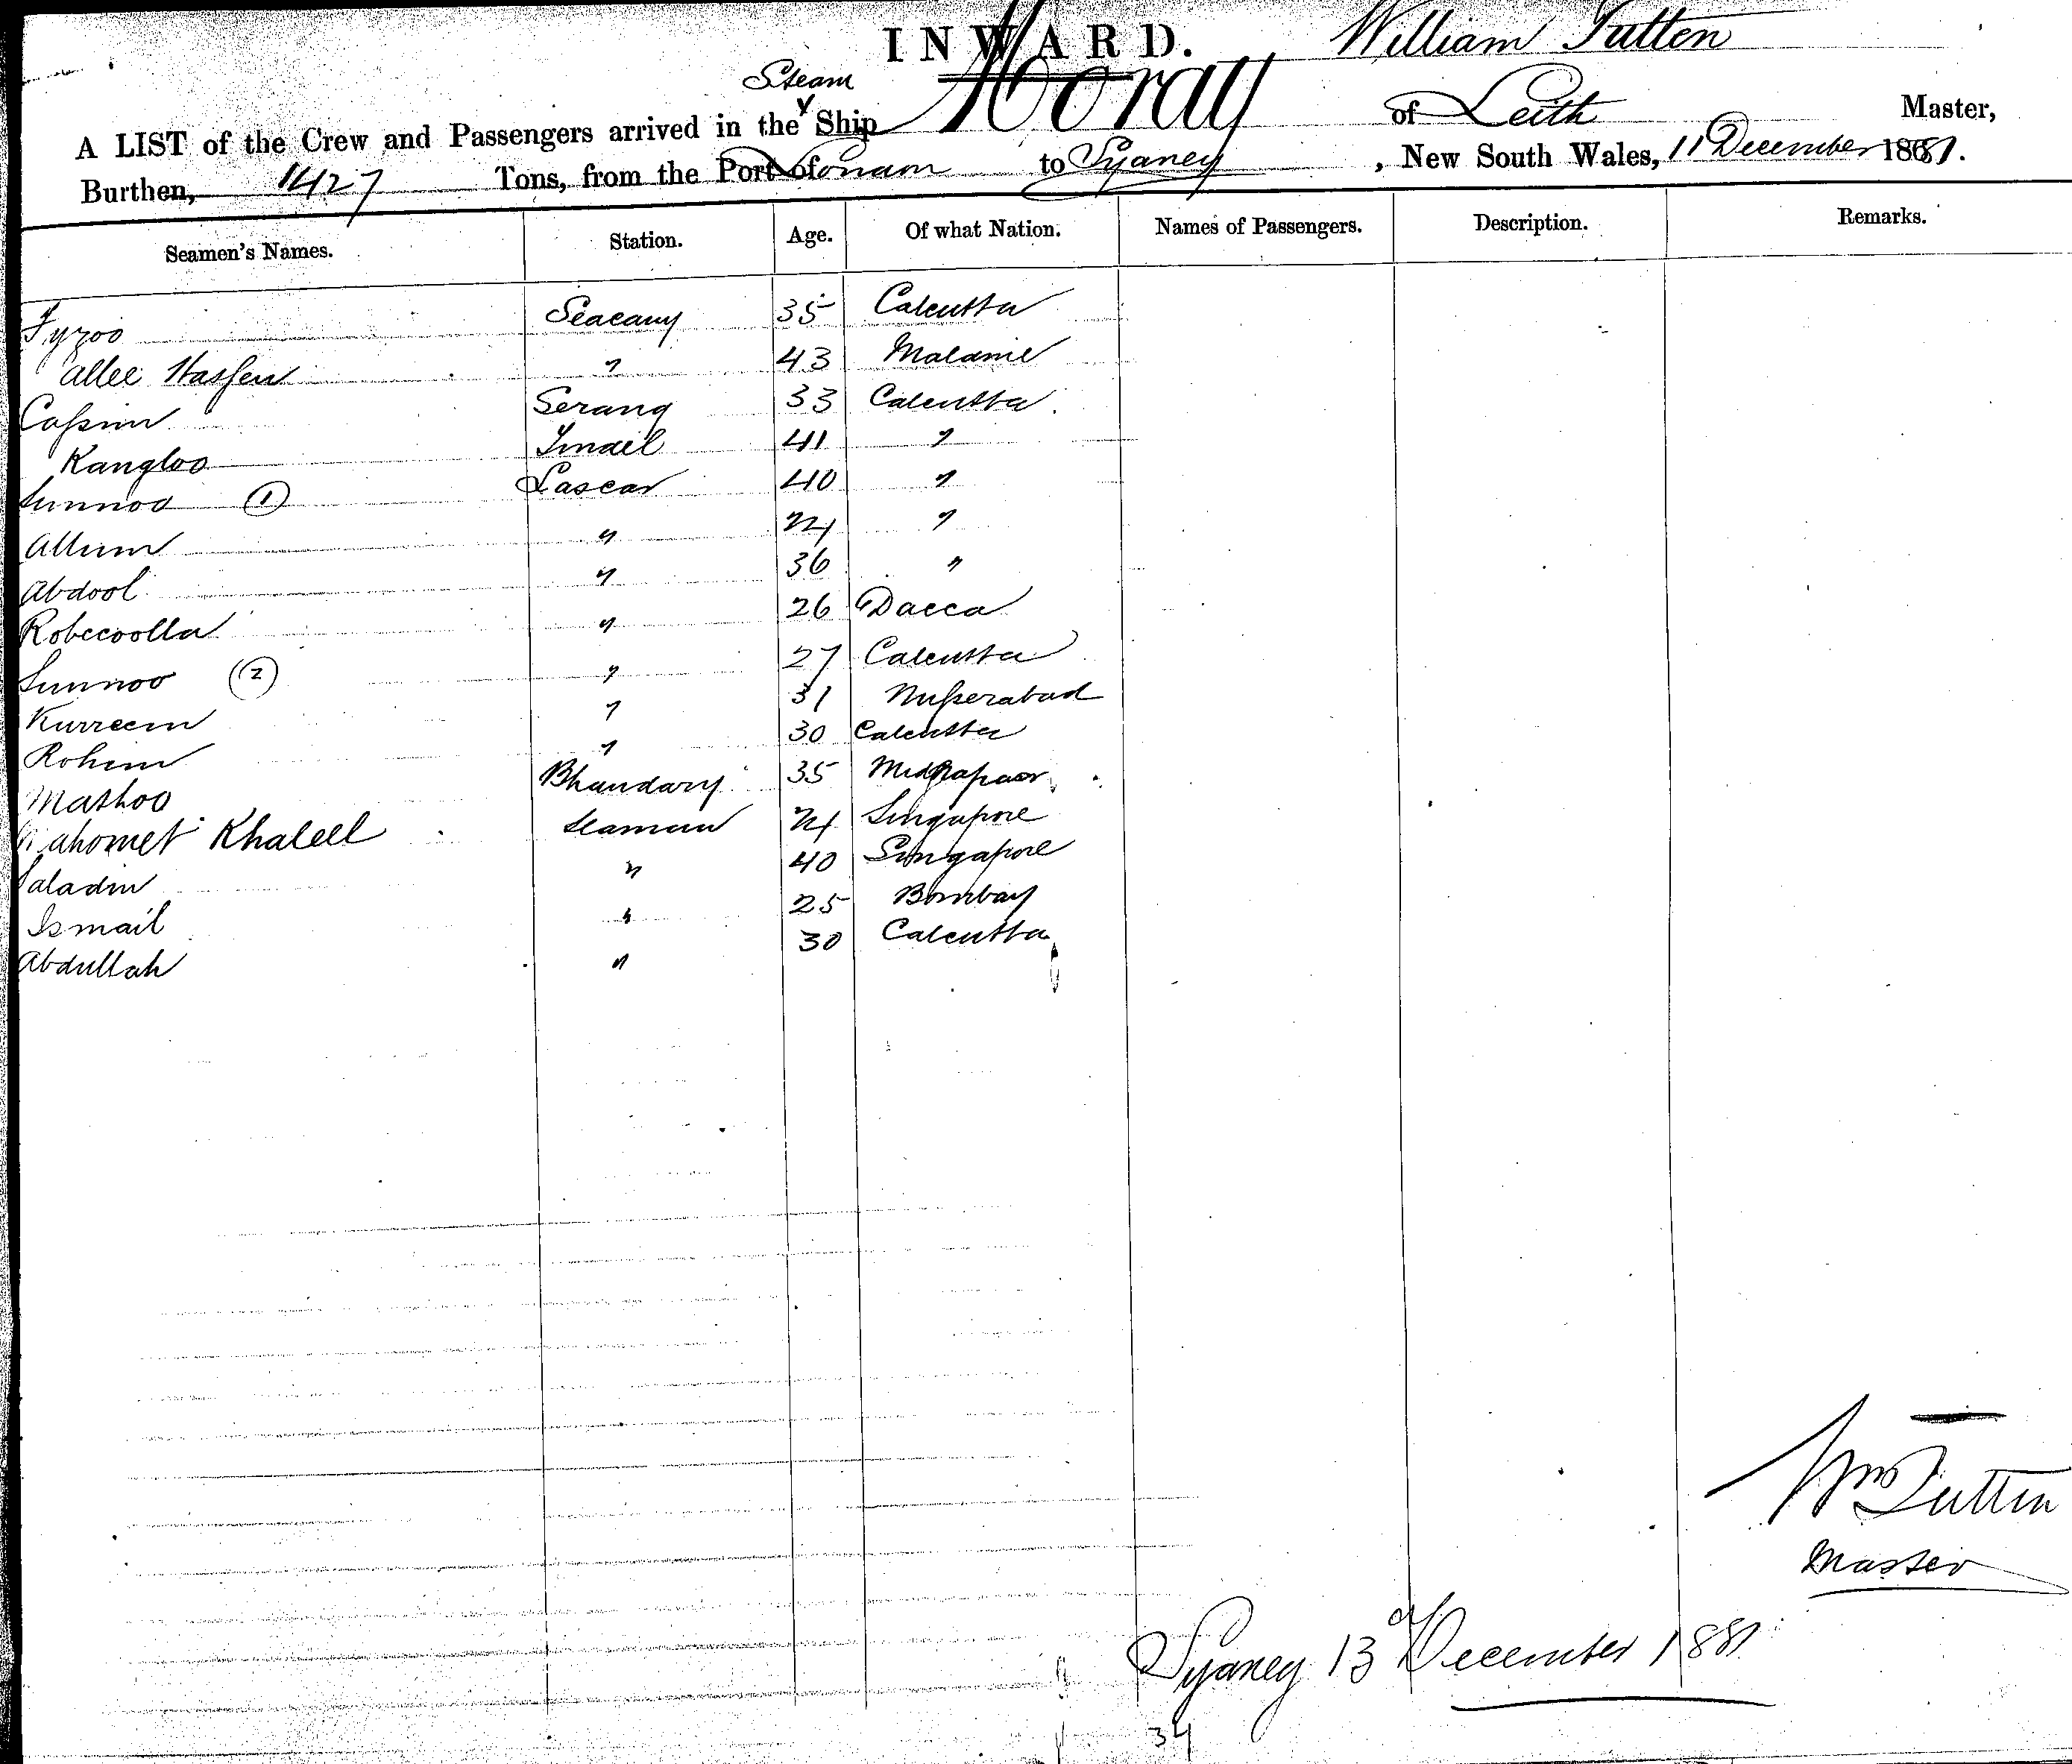 INWARD.
William Tutten
Steam
A LIST of the Crew and Passengers arrived in the Ship Moray of Leith Master,
Burthen, 1427 Tons, from the Port of to Sydney, New South Wales, 11 December 1881.
Seamen's Names. Station. Age. Of what Nation. Names of Passengers. Description. Remarks.
Fyzoo Seacany 35 Calcutta
Allee Hassen " 43
Cassim Serang 33 Calcutta
Kangloo 41 "
Sunnoo (1) Lascar 40 "
Allum " 24 "
Abdool " 36 "
Robecoolla " 26 Dacca
Sunnoo (2) " 27 Calcutta
Kurreem " 31 Nusserabad
Rohim " 30 Calcutta
Mathoo Bhandary 35
Mahomet Khaleel Seaman 24 Singapore
Saladin " 40 Singapore
Ismail " 25 Bombay
Abdullah " 30 Calcutta
Wm Tutten
Master
Sydney 13 December 1881
34